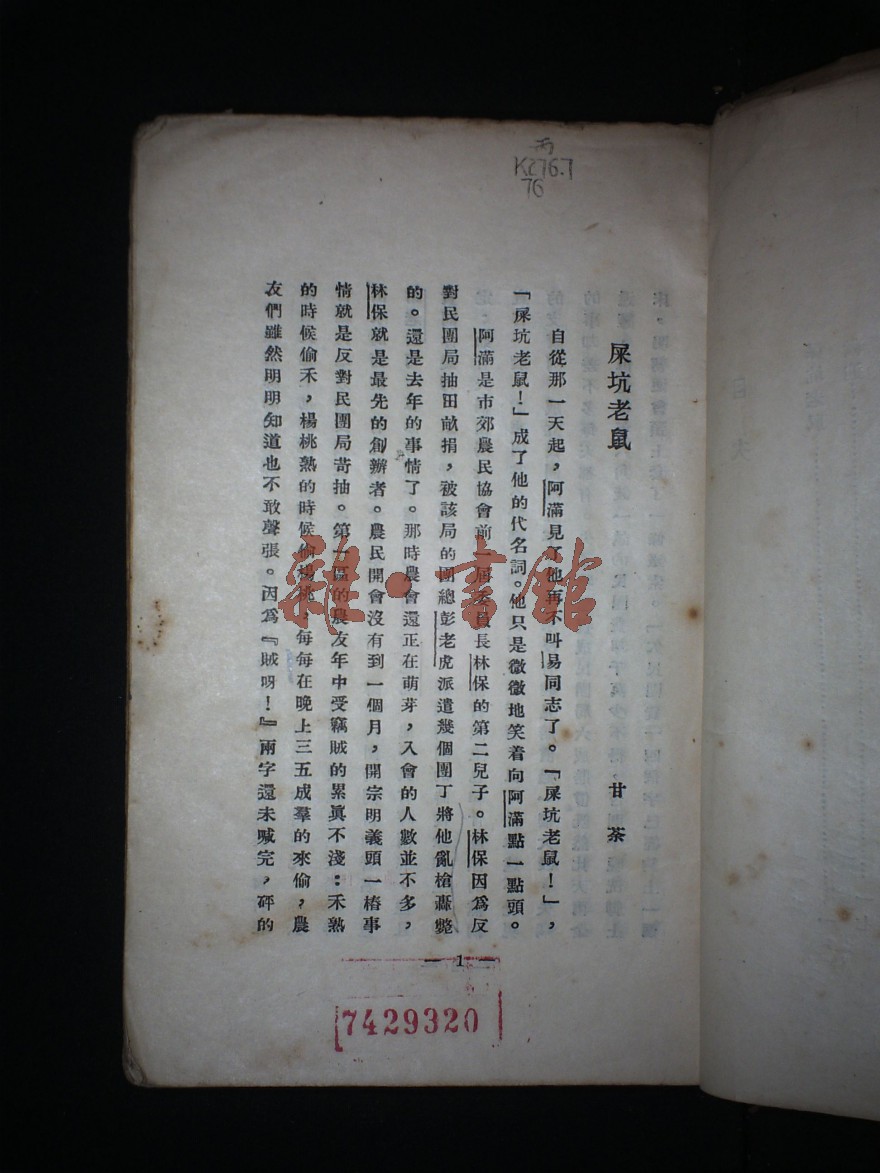 K276.7
76
屎坑老鼠
甘茶
自從那一天起，阿滿見了他再不叫易同志了。「屎坑老鼠！」，
「屎坑老鼠！」成了他的代名詞。他只是微微地笑着向阿滿點一點頭。
阿滿是市郊農民協會前一屆委員長林保的第二兒子。林保因爲反
對民團局抽田畝捐，被該局的團總彭老虎派遣幾個團丁將他亂槍轟斃
的。還是去年的事情了。那時農會還正在萌芽，入會的人數並不多，
林保就是最先的創辦者。農民開會沒有到一個月，開宗明義頭一樁事
情就是反對民團局苛抽。第一區的農友年中受竊賊的累眞不淺：禾熟
的時候偷禾，楊桃熟的時候偷楊桃，每每在晚上三五成羣的來偷，農
友們雖然明明知道也不敢聲張。因爲『賊呀！』兩字還未喊完，砰的
— 1 —
7429320
雜·書館